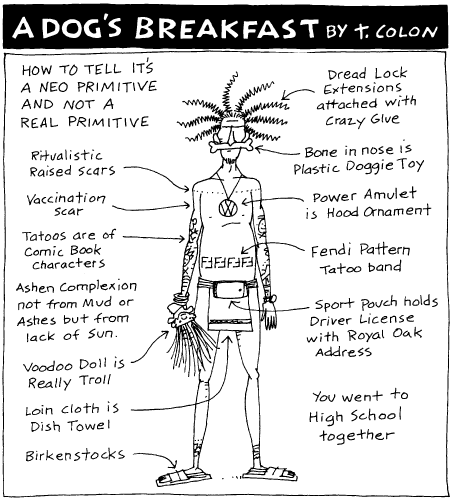 A DOG'S BREAKFAST BY T. COLON
HOW TO TELL IT'S
A NEO PRIMITIVE
AND NOT A
REAL PRIMITIVE
Dread Lock
Extensions
attached with
Crazy Glue
Bone in nose is
Plastic Doggie Toy
Ritualistic
Raised scars
Vaccination
Scar
Power Amulet
is Hood Ornament
Tatoos are of
Comic Book
characters
Fendi Pattern
Tatoo band
Ashen Complexion
not from Mud or
Ashes but from
lack of Sun.
Sport Pouch holds
Driver License
with Royal Oak
Address
Voodoo Doll is
Really Troll
Loin cloth is
Dish Towel
You went to
High School
together
Birkenstocks